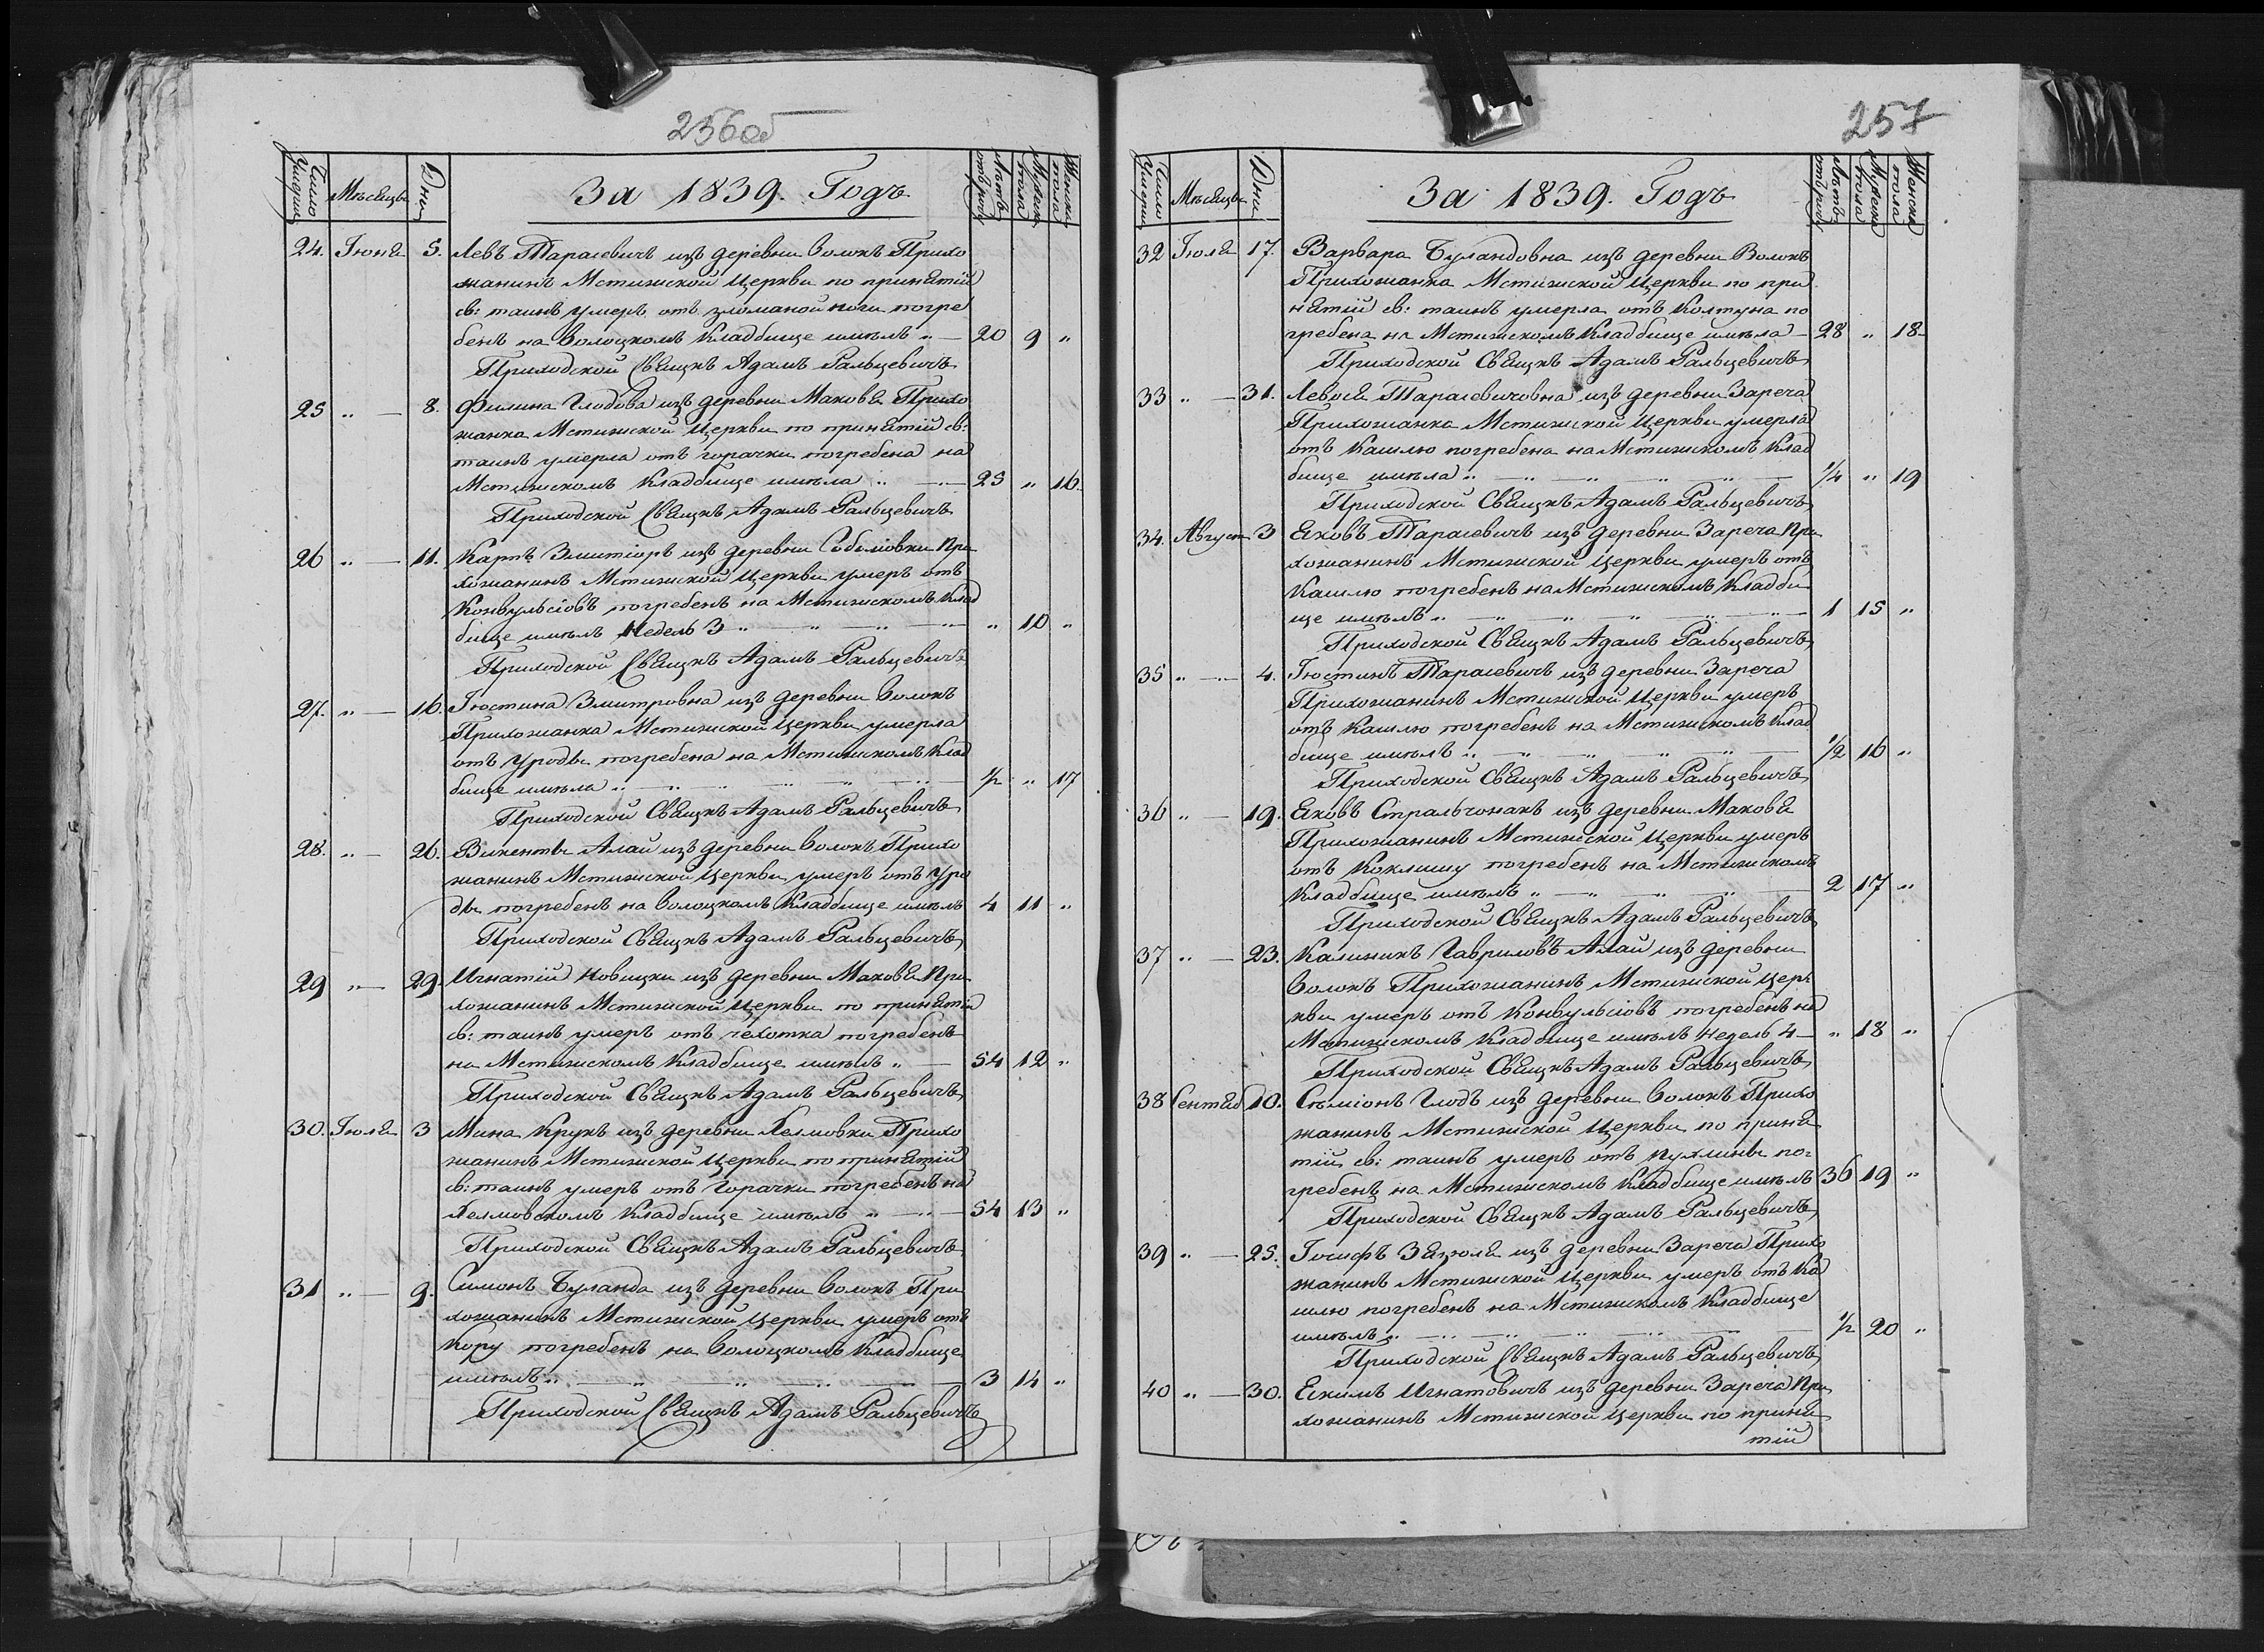 256об
Число Умерших
Мѣсяцъ
Дни
За 1839. Годъ
Лѣтъ отъ роду
Мужеска пола
Женска пола
24. Іюня 5. Левъ Тарасевичъ изъ деревни Волокъ Прихо
жанинъ Мстижской Церкви по принятіи
св: таинъ умеръ отъ зломаной ноги погре
бенъ на Волоцкомъ Кладбище имѣлъ „ — 20 9 „
Приходской Свящнъ Адамъ Ральцевичъ
25 „ — 8. Филина Глодова изъ деревни Маковя Прихо
жанка Мстижской Церкви по принятіи св:
таинъ умерла отъ горачки погребена на
Мстижскомъ Кладбище имѣла „ — 25 „ 16.
Приходской Свящнъ Адамъ Ральцевичъ
26 „ — 11. Карпъ Змитіоръ изъ деревни Соболіовки При
хожанинъ Мстижской Церкви умеръ отъ
Конвульсіовъ погребенъ на Мстижскомъ Клад
бище имѣлъ Недель 3 „ — „ — „ — „ 10 „
Приходской Свящнъ Адамъ Ральцевичъ
27. „ — 16. Іюстина Змитровна изъ деревни Волокъ
Прихожанка Мстижской Церкви умерла
отъ Уроды погребена на Мстижскомъ Клад
бище имѣла „ — „ — „ — „ — 1/2 „ 17
Приходской Свящнъ Адамъ Ральцевичъ
28. „ — 26. Викенты Алай изъ деревни Волокъ Прихо
жанинъ Мстижской Церкви умеръ отъ Уро
ды погребенъ на Волоцкомъ Кладбище имѣлъ 4 11 „
Приходской Свящнъ Адамъ Ральцевичъ
29 „ — 29. Игнатій Новицки изъ деревни Маковя При
хожанинъ Мстижской Церкви по принятіи
св: таинъ умеръ отъ чехотка погребенъ
на Мстижскомъ Кладбище имѣлъ „ — 54 12 „
Приходской Свящнъ Адамъ Ральцевичъ
30. Іюля 3 Мина Крукъ изъ деревни Хелмовки Прихо
жанинъ Мстижской Церкви по принятіи
св: таинъ умеръ отъ Горачки погребенъ на
Хелмовскомъ Кладбище имѣлъ „ — „ — 54 13 „
Приходской Свящнъ Адамъ Ральцевичъ
31 „ — 9. Симонъ Буланда изъ деревни Волокъ При
хожанинъ Мстижской Церкви умеръ отъ
Кору погребенъ на Волоцкомъ Кладбище
имѣлъ „ — „ — „ — „ — 3 14 „
Приходской Свящнъ Адамъ Ральцевичъ
257
Число Умерших
Мѣсяцъ
Дни
За 1839. Годъ
Лѣтъ отъ роду
Мужеска пола
Женска пола
32 Іюля 17. Варвара Буландовна изъ деревни Волокъ
Прихожанка Мстижской Церкви по при
нятіи св: таинъ умерла отъ Колтуна по
гребена на Мстижскомъ Кладбище имѣла — 28 „ 18
Приходской Свящнъ Адамъ Ральцевичъ
33 „ — 31. Левося Тарасевичовна изъ деревни Зареча
Прихожанка Мстижской Церкви умерла
отъ Кашлю погребена на Мстижскомъ Клад
бище имѣла „ — „ — „ — „ — 1/4 „ 19
Приходской Свящнъ Адамъ Ральцевичъ
34. Август 3 Яковъ Тарасевичъ изъ деревни Зареча При
хожанинъ Мстижской Церкви умеръ отъ
Кашлю погребенъ на Мстижскомъ Кладби
ще имѣлъ „ — „ — „ — „ — 1 15 „
Приходской Свящнъ Адамъ Ральцевичъ
35 „ — 4. Іюстинъ Тарасевичъ изъ деревни Зареча
Прихожанинъ Мстижской Церкви умеръ
отъ Кашлю погребенъ на Мстижскомъ Клад
бище имѣлъ „ — „ — „ — „ — 1/2 16 „
Приходской Свящнъ Адамъ Ральцевичъ
36 „ — 19. Яковъ Стральчонакъ изъ деревни Маковя
Прихожанинъ Мстижской Церкви умеръ
отъ Коклишу погребенъ на Мстижскомъ
Кладбище имѣлъ „ — „ — „ — „ — 2 17 „
Приходской Свящнъ Адамъ Ральцевичъ
37 „ — 23. Калиникъ Гавриловъ Алай изъ деревни
Волокъ Прихожанинъ Мстижской Цер
кви умеръ отъ Конвульсіовъ погребенъ на
Мстижскомъ Кладбище имѣлъ Недель 4 — „ 18 „
Приходской Свящнъ Адамъ Ральцевичъ
38 Сентяб 10. Сѣміонъ Глодъ изъ деревни Волокъ Прихо
жанинъ Мстижской Церкви по приня
тіи св: таинъ умеръ отъ пухлины по=
гребенъ на Мстижскомъ Кладбище имѣлъ 36 19 „
Приходской Свящнъ Адамъ Ральцевичъ
39 „ — 25. Іосифъ Зязюля изъ деревни Зареча Прихо
жанинъ Мстижской Церкви умеръ отъ Ка
шлю погребенъ на Мстижскомъ Кладбище
имѣлъ „ — „ — „ — „ — 1/2 20 „
Приходской Свящнъ Адамъ Ральцевичъ
40 „ — 30. Якимъ Игнатовичъ изъ деревни Зареча При
хожанинъ Мстижской Церкви по приня
тіи